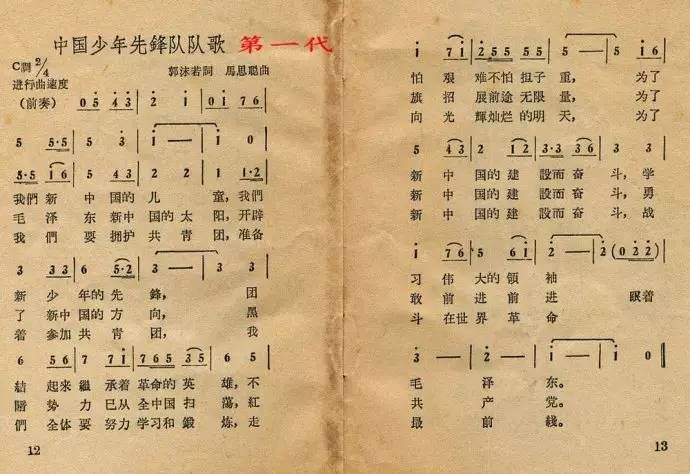 中国少年先鋒队队歌 第一代
C調 2/4 郭沫若詞 馬思聪曲
进行曲速度
(前奏) | 05 43 | 2 1 | 01 76 |
5 5·5 | 5 i | i — | i 0 |
5·5 i6 | 5 3 2 1 | 2 — | 2 1·2 |
我們 新 中国的 儿 童,我們
毛 泽 东 新中国的 太 阳,开辟
我們 要 拥护 共 青 团,准备
3 33 | 6 5·2 | 3 — | 3 0 3 |
新 少年的先 鋒, 团
了 新中国的 方 向, 黑
着 参加共 青 团, 我
6 5 6 | 7 7i | 76 56 | 35 5 |
結 起來 繼 承着 革命的 英 雄,不
暗 势 力 已从 全中国 扫 荡,紅
們 全体 要 努力 学习和 鍛 炼,走
12
i 7i | 2 55 55 | 5 — | 5 i6 |
怕 艰 难不怕 担子 重, 为了
旗 招 展前途 无限 量, 为了
向 光 輝灿烂 的明 天, 为了
5 43 | 2 i2 | 3·3 36 | i i2 |
新 中国的 建 設而 奋 斗,学
新 中国的 建 設而 奋 斗,勇
新 中国的 建 設而 奋 斗,战
i 76 | 5 55 | 2 — | 2 (022) |
习 伟 大的 領 袖
敢 前 进 前 进 跟着
斗 在世 界 革 命
3 — | 2 — | i — | i 0 |
毛 泽 东。
共 产 党。
最 前 綫。
13